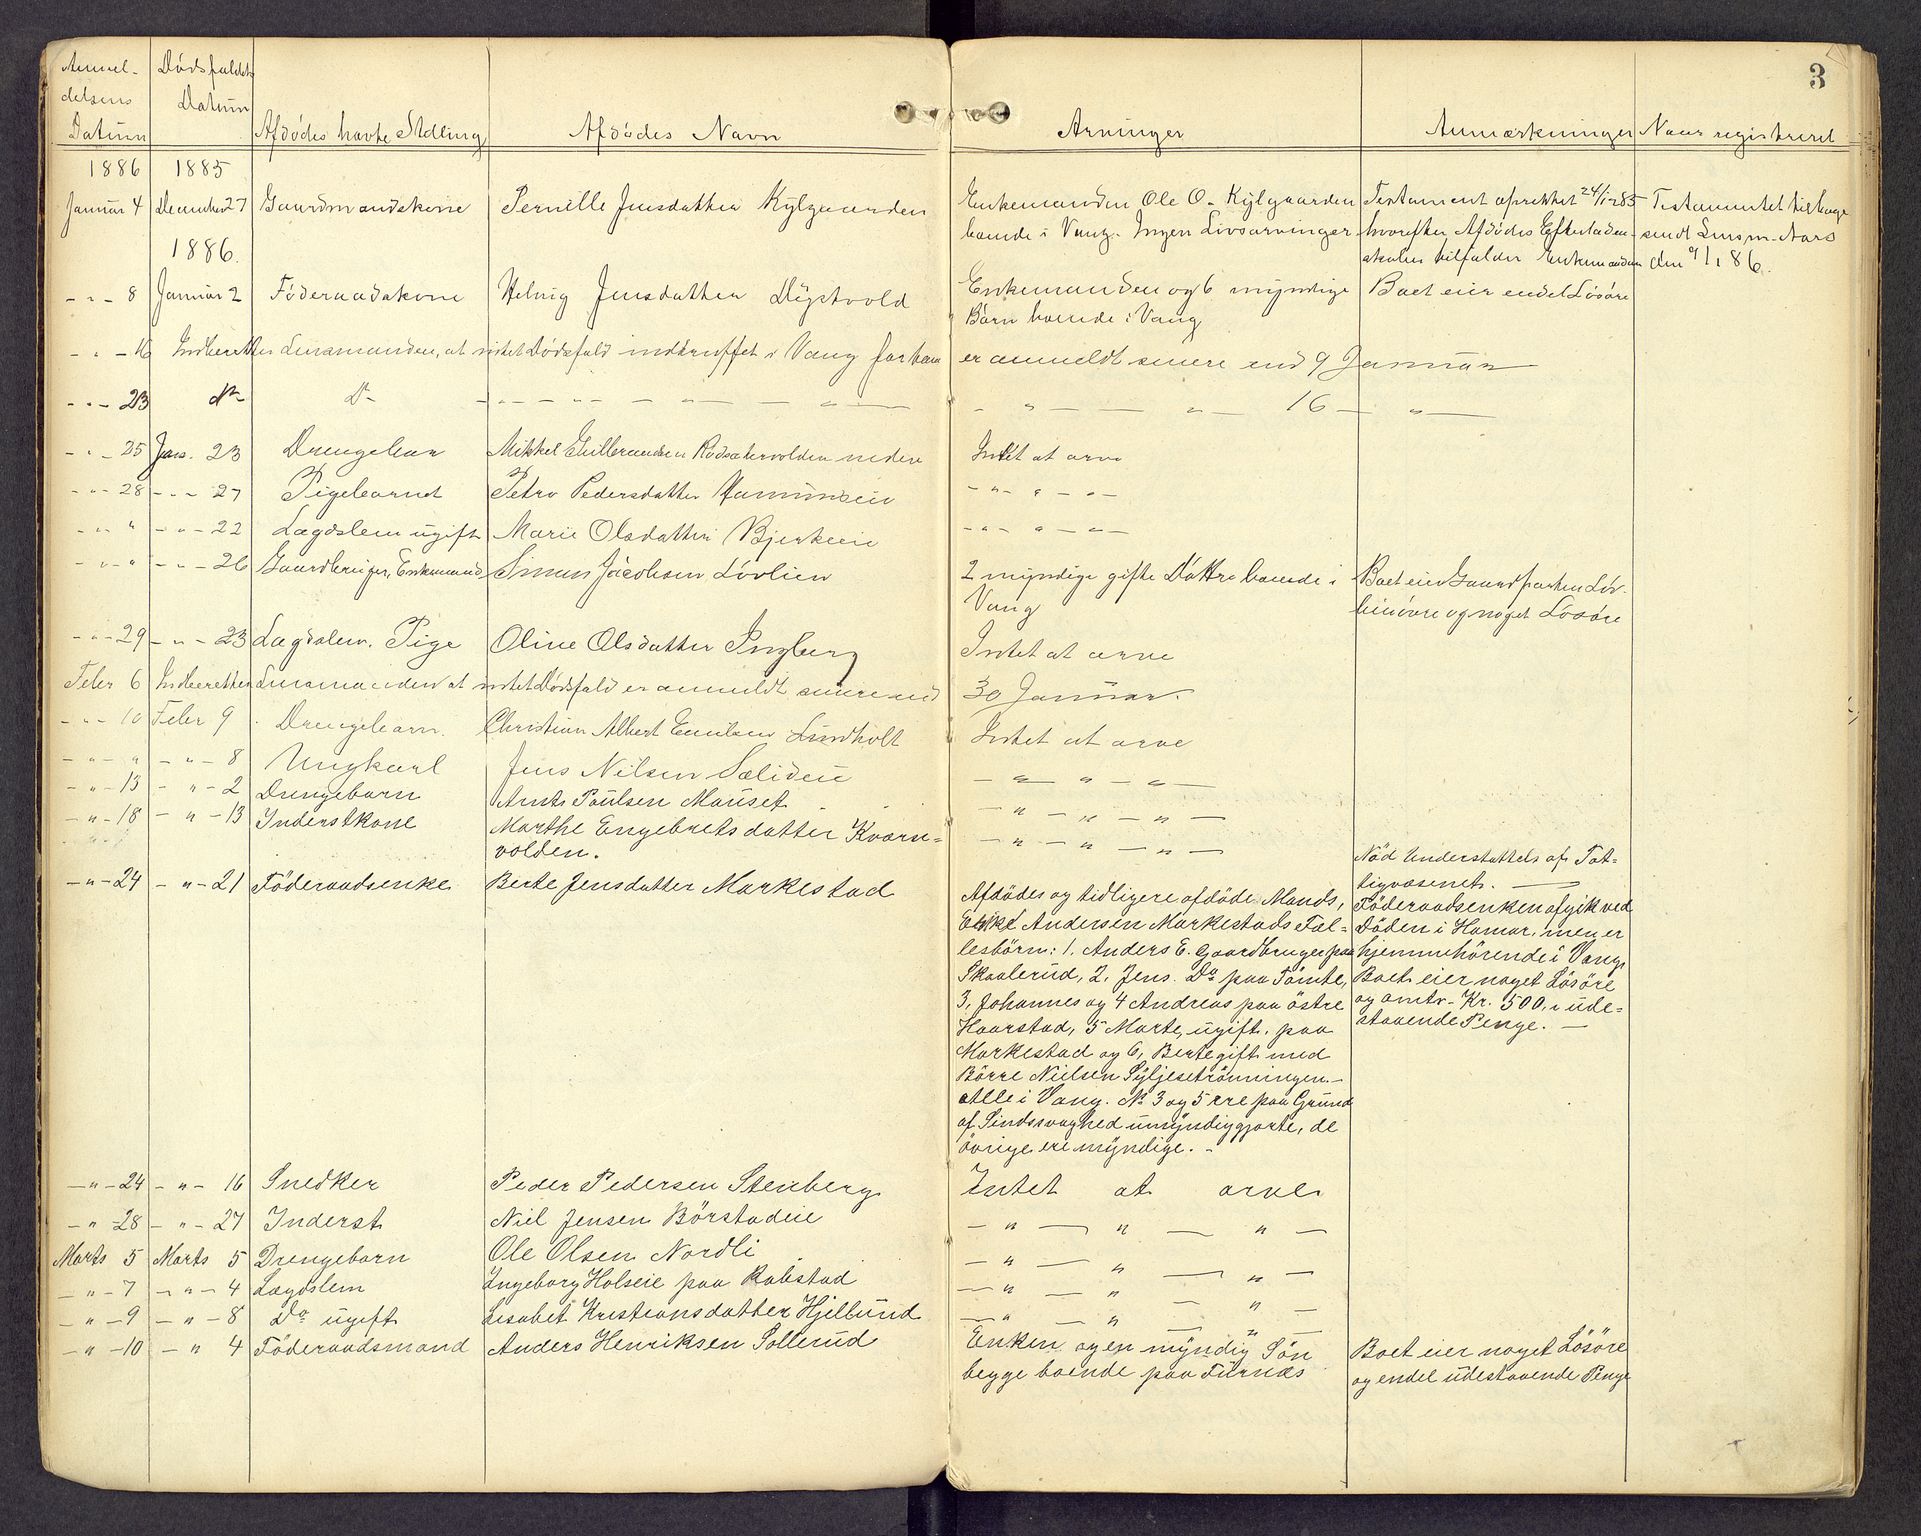 3
Anmel-
delsens
Datum
Dødsfaldets
Datum
Afdødes havte Stilling
Afdødes Navn
Arvinger
Anmærkninger
Naar registreret
1886 1885
Januar 4 December 27 Gaardmandskone Pernille Jensdatter Kylgaarden
Enkemanden Ole O. Kylgaarden
boende i Vang. Ingen Livsarvinger
Testament oprettet 24/1 85
hvorefter Afdødes Efterladen-
skaber tilfalder Enkemanden
Testamentet tilbage
sendt Lensm. Aars
den 9/1 86.
1886.
- " - 8 Januar 2 Föderaadskone Helvig Jensdatter Dystvold
Enkemanden og 6 myndige
Børn boende i Vang
Boet eier endel Løsøre
- " - 16 Indberetter Lensmanden, at intet Dødsfald indtruffet i Vang for ham er anmeldt senere end 9 Januar
- " - 23 do do - " - - " - - " - - " - - " - - " - 16 - " -
- " - 25 Jan. 23 Drengebarn Mikkel Gulbrandsen Rødsætervolden nedre Intet at arve
- " - 28 - " - 27 Pigebarnet Petra Pedersdatter - " - " - " -
- " - " - " - 22 Lægdslem ugift Marie Olsdatter Bjerkeeie - " - " - " -
- " - " - " - 26 Gaardbruger, Enkemand Simen Jacobsen Lövlien
2 myndige gifte Døttre boende i
Vang
Boet eier Gaardparten Løv-
lien øvre og noget Løsøre
- " - 29 - " - 23 Lægdslem. Pige Oline Olsdatter Ingberg Intet at arve
Febr 6 Indberetter Lensmanden at intet Dødsfald er anmeldt senere end 30 Januar.
- " - 10 Febr 9 Drengebarn. Christian Albert Emilsen Lundholt Intet at arve
- " - " - " - 8 Ungkarl Jens Nilsen Sælideie - " - " - " -
- " - 13 - " - 2 Drengebarn Arnt Paulsen Mauset - " - " - " -
- " - 18 - " - 13 Inderstkone Marthe Engebretsdatter Kvarn=
volden.
- " - " - " -
Nød Understøttels af Fat-
tigvæsenet. -
- " - 24 - " - 21 Föderaadsenke Berte Jensdatter Markestad
Afdødes og tidligere afdøde Mands,
Erik Andersen Markestads Fæl=
lesbørn: 1. Anders E. Gaardbruger paa
Skaalerud, 2, Jens. Do paa Tømte,
3, Johannes og 4 Andreas paa østre
Haarstad, 5 Marte, ugift, paa
Markestad og 6, Berte gift med
Börre Nielsen Syljesetrønningen. -
alle i Vang. No 3 og 5 ere paa Grund
af Sindssvaghed umyndiggjorte, de
øvrige ere myndige. -
Föderaadsenken afgik ved
Døden i Hamar, men er
hjemmehørende i Vang.
Boet eier noget Løsøre
og omtr. Kr. 500, i ude=
staaende Penge. -
- " - 24 - " - 16 Snedker Peder Pedersen Stenberg Intet at arve
- " - 28 - " - 27 Inderst Niel Jensen Börstadeie - " - " - " -
Marts 5 Marts 5 Drengebarn Ole Olsen Nordli - " - " - " -
- " - 7 - " - 4 Lægdslem Ingeborg Holseie paa Rabstad - " - " - " -
- " - 9 - " - 8 Do ugift Lisabet Kristiansdatter Hjellund - " - " - " -
- " - 10 - " 4 Föderaadsmand Anders Henriksen Sollerud
Enken og en myndig Søn
begge boende paa Furnæs
Boet eier noget Løsøre
og endel udestaaende Penge